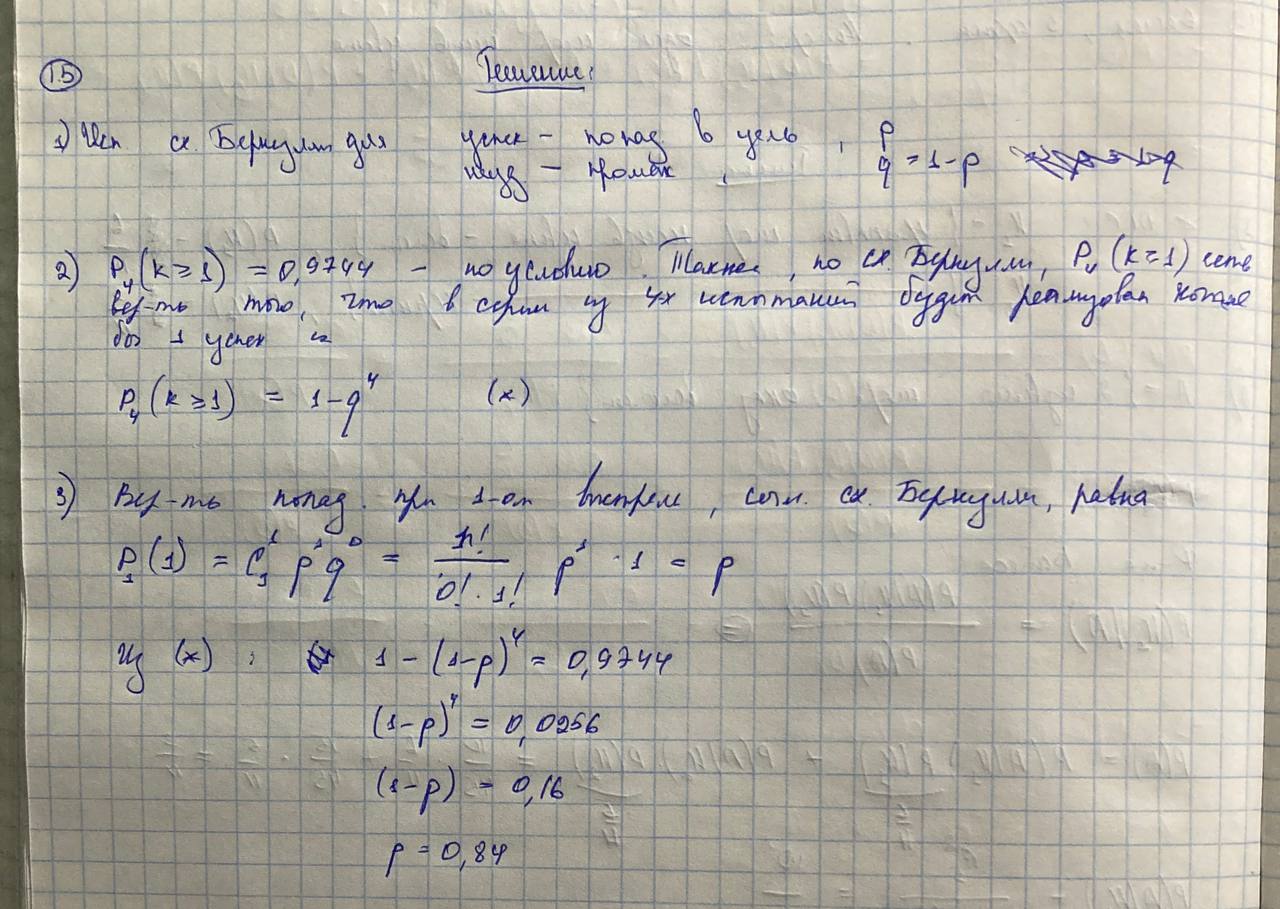 15 Решение:
1) Исп сх. Бернулли для успех – попад в цель, p
неуд – промах, q = 1-p
2) P₄(k≥1) = 0,9744 – по условию. Также, по сх. Бернулли, P₄(k≥1) есть
вер-ть того, что в серии из 4х испытаний будет реализован хотя
бы 1 успех и
P₄(k≥1) = 1-q⁴ (x)
3) Вер-ть попад. при 1-ом выстреле, согл. сх. Бернулли, равна
P₁(1) = C₁¹ p¹ q⁰ = 1!/(0! · 1!) p¹ · 1 = p
Из (x): 1 - (1-p)⁴ = 0,9744
(1-p)⁴ = 0,0256
(1-p) = 0,16
p = 0,84